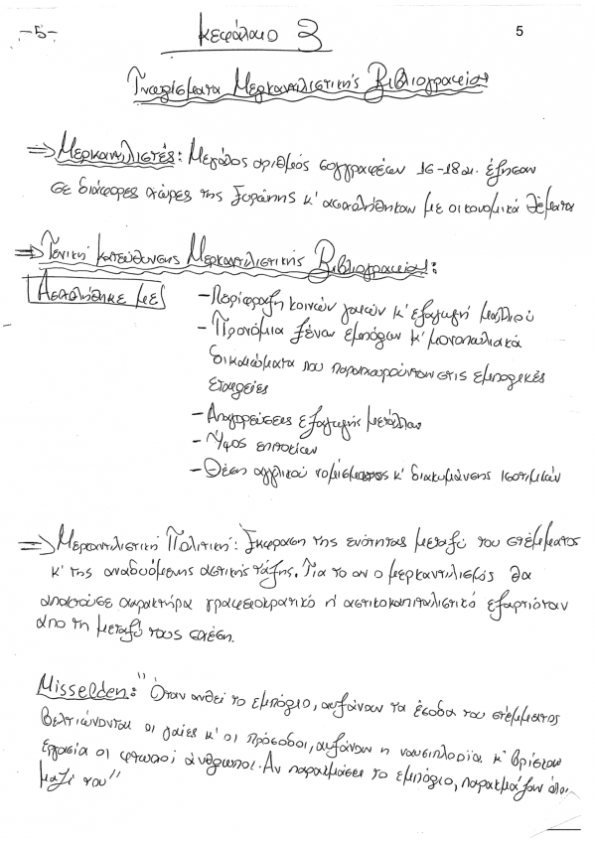 -5-
5
Κεφάλαιο 3
Γνωρίσματα Μερκαντιλιστικής Βιβλιογραφίας
⇒ Μερκαντιλιστές: Μεγάλος αριθμός συγγραφέων 16-18 αι. έζησαν
σε διάφορες χώρες της Ευρώπης κ' ασχολήθηκαν με οικονομικά θέματα
⇒ Γενική κατεύθυνσης Μερκαντιλιστικής Βιβλιογραφίας:
Ασχολήθηκε με:
- Περίφραξη κοινών γαιών κ' εξαγωγή μαλλιού
- Προνόμια ξένων εμπόρων κ' μονοπωλιακά
δικαιώματα που παραχωρούνταν στις εμπορικές
εταιρείες
- Απαγορεύσεις εξαγωγής μετάλλων
- Ύψος επιτοκίων
- Θέση αγγλικού νομίσματος κ' διακυμάνσης ισοτιμιών
⇒ Μερκαντιλιστική Πολιτική: Έκφραση της ενότητας μεταξύ του στέμματος
κ' της αναδυόμενης αστικής τάξης. Για το αν ο μερκαντιλισμός θα
αποκτούσε χαρακτήρα γραφειοκρατικό ή αστικοκαπιταλιστικό εξαρτιόταν
από τη μεταξύ τους σχέση.
Misselden: "Όταν ανθεί το εμπόριο, αυξάνουν τα έσοδα του στέμματος
βελτιώνονται οι γαίες κ' οι πρόσοδοι, αυξάνουν η ναυσιπλοΐα κ' βρίσκουν
εργασία οι φτωχοί άνθρωποι. Αν παρακμάσει το εμπόριο, παρακμάζουν όλοι
μαζί του"